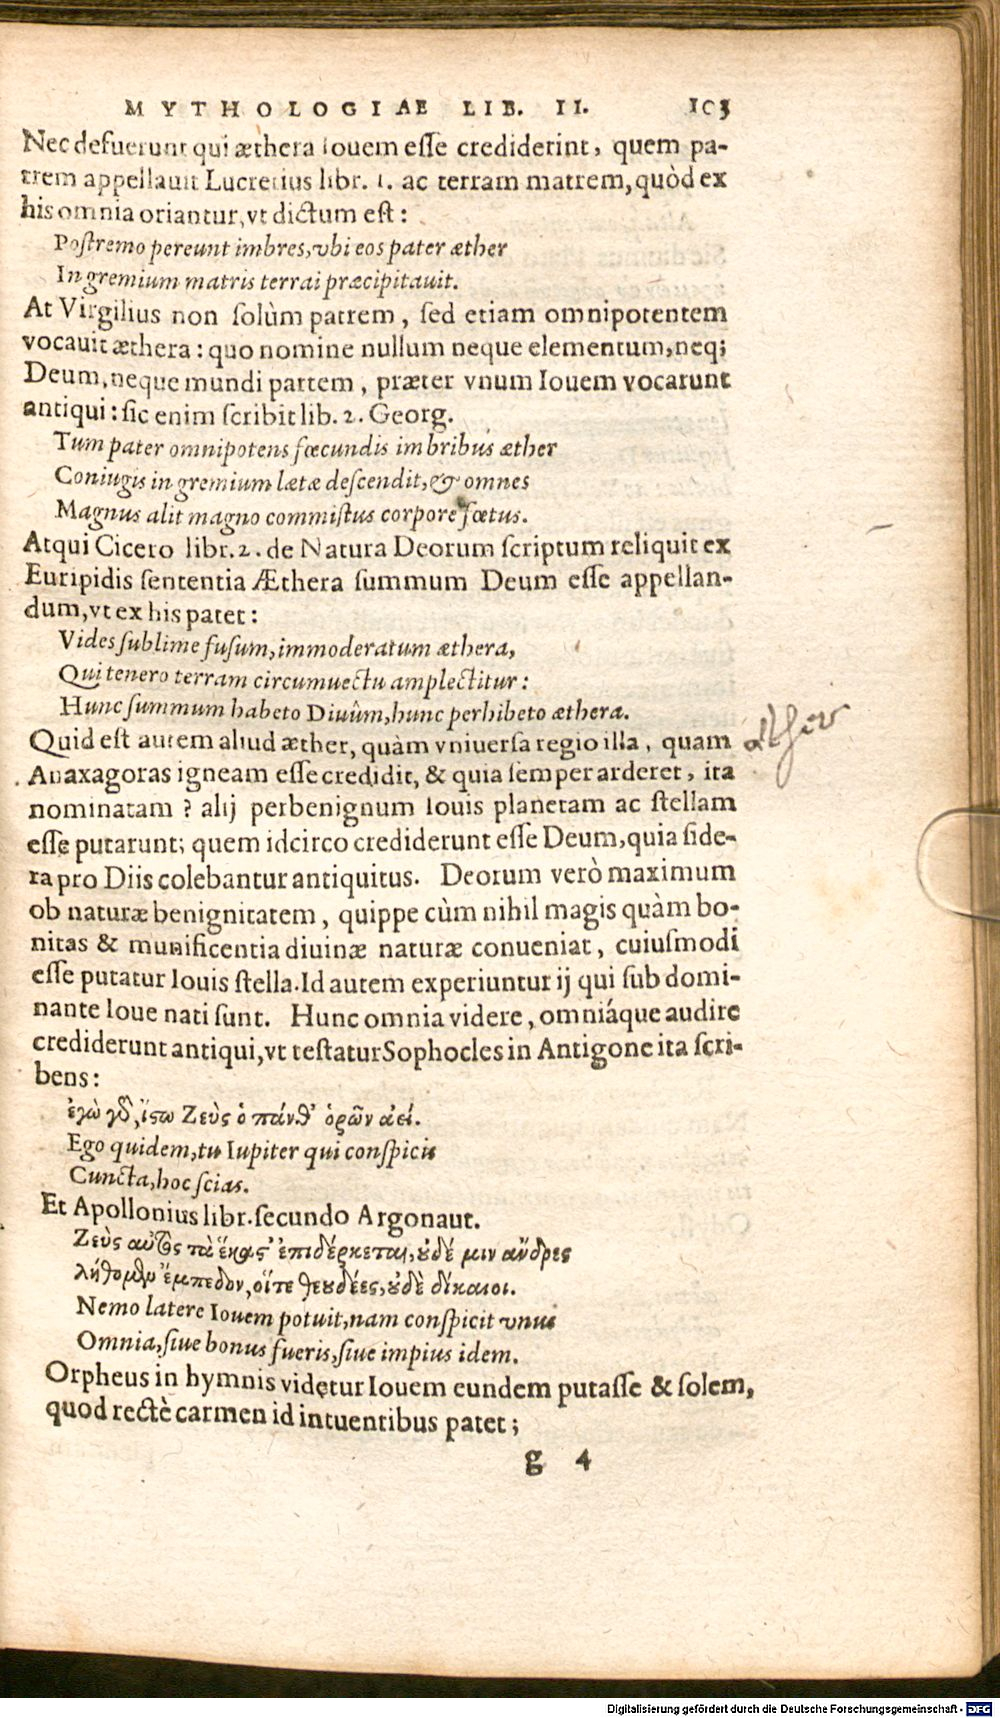 MYTHOLOGIAE LIB. II. 103
Nec defuerunt qui æthera Iouem eſſe crediderint, quem pa-
trem appellauit Lucretius libr. 1. ac terram matrem, quòd ex
his omnia oriantur, vt dictum eſt:
Poſtremo pereunt imbres, vbi eos pater æther
In gremium matris terrai præcipitauit.
At Virgilius non ſolùm patrem, ſed etiam omnipotentem
vocauit æthera: quo nomine nullum neque elementum, neq;
Deum, neque mundi partem, præter vnum Iouem vocarunt
antiqui: ſic enim ſcribit lib. 2. Georg.
Tum pater omnipotens fœcundis imbribus æther
Coniugis in gremium lætæ deſcendit, & omnes
Magnus alit magno commiſtus corpore fœtus.
Atqui Cicero libr. 2. de Natura Deorum ſcriptum reliquit ex
Euripidis ſententia Æthera ſummum Deum eſſe appellan-
dum, vt ex his patet:
Vides ſublime fuſum, immoderatum æthera,
Qui tenero terram circumuectu amplectitur:
Hunc ſummum habeto Diuûm, hunc perhibeto æthera.
Quid eſt autem aliud æther, quàm vniuerſa regio illa, quam
Anaxagoras igneam eſſe credidit, & quia ſemper arderet, ita
nominatam? alij perbenignum Iouis planetam ac ſtellam
eſſe putarunt; quem idcirco crediderunt eſſe Deum, quia ſide-
ra pro Diis colebantur antiquitus. Deorum verò maximum
ob naturæ benignitatem, quippe cùm nihil magis quàm bo-
nitas & munificentia diuinæ naturæ conueniat, cuiuſmodi
eſſe putatur Iouis ſtella. Id autem experiuntur ij qui ſub domi-
nante Ioue nati ſunt. Hunc omnia videre, omniáque audire
crediderunt antiqui, vt teſtatur Sophocles in Antigone ita ſcri-
bens:
ἐγὼ γὸ, ἴϛω Ζεὺς ὁ πάνθ' ὁρῶν ἀεί.
Ego quidem, tu Iupiter qui conſpicis
Cuncta, hoc ſcias.
Et Apollonius libr. ſecundo Argonaut.
Ζεὺς αὐτὸς τὰ ἕκαϛ' ἐπιδέρκεται, ȣδέ μιν ἄνδρες
λήθομεν ἔμπεδον, οἵτε θεȣδέες, ȣδὲ δίκαιοι.
Nemo latere Iouem potuit, nam conſpicit vnus
Omnia, ſiue bonus fueris, ſiue impius idem.
Orpheus in hymnis videtur Iouem eundem putaſſe & ſolem,
quod rectè carmen id intuentibus patet;
g 4
æther
Digitalisierung gefördert durch die Deutsche Forschungsgemeinschaft - DFG